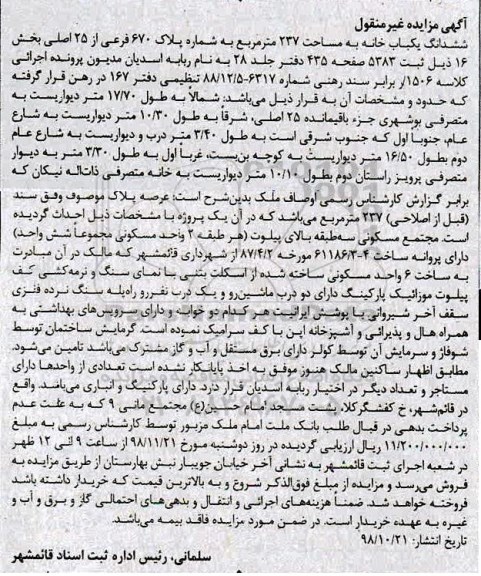 آگهی مزایده غیرمنقول
ششدانگ یکباب خانه به مساحت ۲۳۷ مترمربع به شماره پلاک ۶۷۰ فرعی از ۲۵ اصلی بخش
۱۶ ذیل ثبت ۵۳۸۳ صفحه ۴۳۵ دفتر جلد ۲۸ به نام ربابه اسدیان مدیون پرونده اجرائی
کلاسه ۱۵۰۶/ر برابر سند رهنی شماره ۶۳۱۷-۸۸/۱۲/۵ تنظیمی دفتر ۱۶۷ در رهن قرار گرفته
که حدود و مشخصات آن به قرار ذیل می‌باشد: شمالاً به طول ۱۷/۷۰ متر دیواریست به
متصرفی بوشهری جزء باقیمانده ۲۵ اصلی، شرقاً به طول ۱۰/۳۰ متر دیواریست به شارع
عام، جنوباً اول که جنوب شرقی است به طول ۳/۴۰ متر درب و دیواریست به شارع عام
دوم بطول ۱۶/۵۰ متر دیواریست به کوچه بن‌بست، غرباً اول به طول ۳/۳۰ متر به دیوار
متصرفی پرویز راستان دوم بطول ۱۰/۱۰ متر دیواریست به خانه متصرفی ذات‌اله نیکان که
برابر گزارش کارشناس رسمی اوصاف ملک بدین‌شرح است: عرصه پلاک موصوف وفق سند
(قبل از اصلاحی) ۲۳۷ مترمربع می‌باشد که در آن یک پروژه با مشخصات ذیل احداث گردیده
است. مجتمع مسکونی سه‌طبقه بالای پیلوت (هر طبقه ۲ واحد مسکونی مجموعاً شش واحد)
دارای پروانه ساخت ۴-۶۱۱۸۶/۳ مورخه ۸۷/۴/۲ از شهرداری قائمشهر که مالک در آن مبادرت
به ساخت ۶ واحد مسکونی ساخته شده از اسکلت بتنی با نمای سنگ و نرمه‌کشی کف
پیلوت موزائیک پارکینگ دارای دو درب ماشین‌رو و یک درب نفررو راه‌پله سنگ نرده فلزی
سقف آخر شیروانی با پوشش ایرانیت هر کدام دو خوابه و دارای سرویس‌های بهداشتی به
همراه هال و پذیرائی و آشپزخانه اپن با کف سرامیک نموده است. گرمایش ساختمان توسط
شوفاژ و سرمایش آن توسط کولر دارای برق مستقل و آب و گاز مشترک می‌باشد تامین می‌شود.
مطابق اظهار ساکنین مالک هنوز موفق به اخذ پایانکار نشده است تعدادی از واحدها دارای
مستاجر و تعداد دیگر در اختیار ربابه اسدیان قرار دارد. دارای پارکینگ و انباری می‌باشد. واقع
در قائم‌شهر، خ کفشگرکلا، پشت مسجد امام حسین(ع) مجتمع مانی ۹ که به علت عدم
پرداخت بدهی در قبال طلب بانک ملت امام ملک مزبور توسط کارشناس رسمی به مبلغ
۱۱/۲۰۰/۰۰۰/۰۰۰ ریال ارزیابی گردیده در روز دوشنبه مورخ ۹۸/۱۱/۲۱ از ساعت ۹ الی ۱۲ ظهر
در شعبه اجرای ثبت قائمشهر به نشانی آخر خیابان جویبار نبش بهارستان از طریق مزایده به
فروش می‌رسد و مزایده از مبلغ فوق‌الذکر شروع و به بالاترین قیمت که خریدار داشته باشد
فروخته خواهد شد. ضمناً هزینه‌های اجرائی و انتقال و بدهی‌های احتمالی گاز و برق و آب و
غیره به عهده خریدار است. در ضمن مورد مزایده فاقد بیمه می‌باشد.
تاریخ انتشار: ۹۸/۱۰/۲۱
سلمانی، رئیس اداره ثبت اسناد قائمشهر